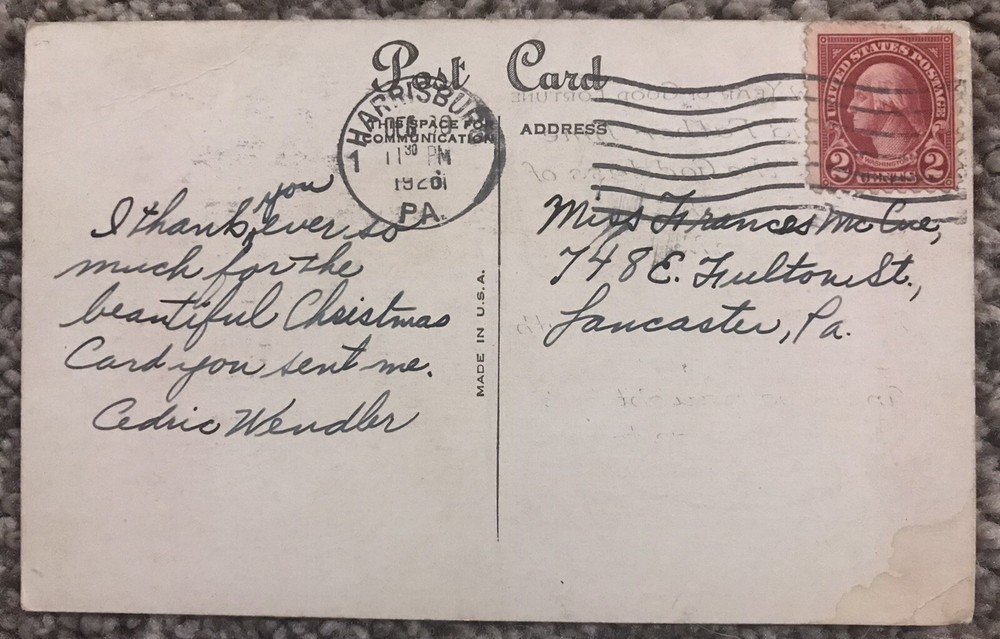 Post Card
THIS SPACE FOR
COMMUNICATION
ADDRESS
HARRISBURG
DEC 30
11 30 PM
192
PA.
UNITED STATES POSTAGE
WASHINGTON
2 CENTS 2
I thank you ever so
much for the
beautiful Christmas
Card you sent me.
Cedric Wendler
MADE IN U.S.A.
Miss Frances McCue,
748 E. Fulton St.,
Lancaster, Pa.